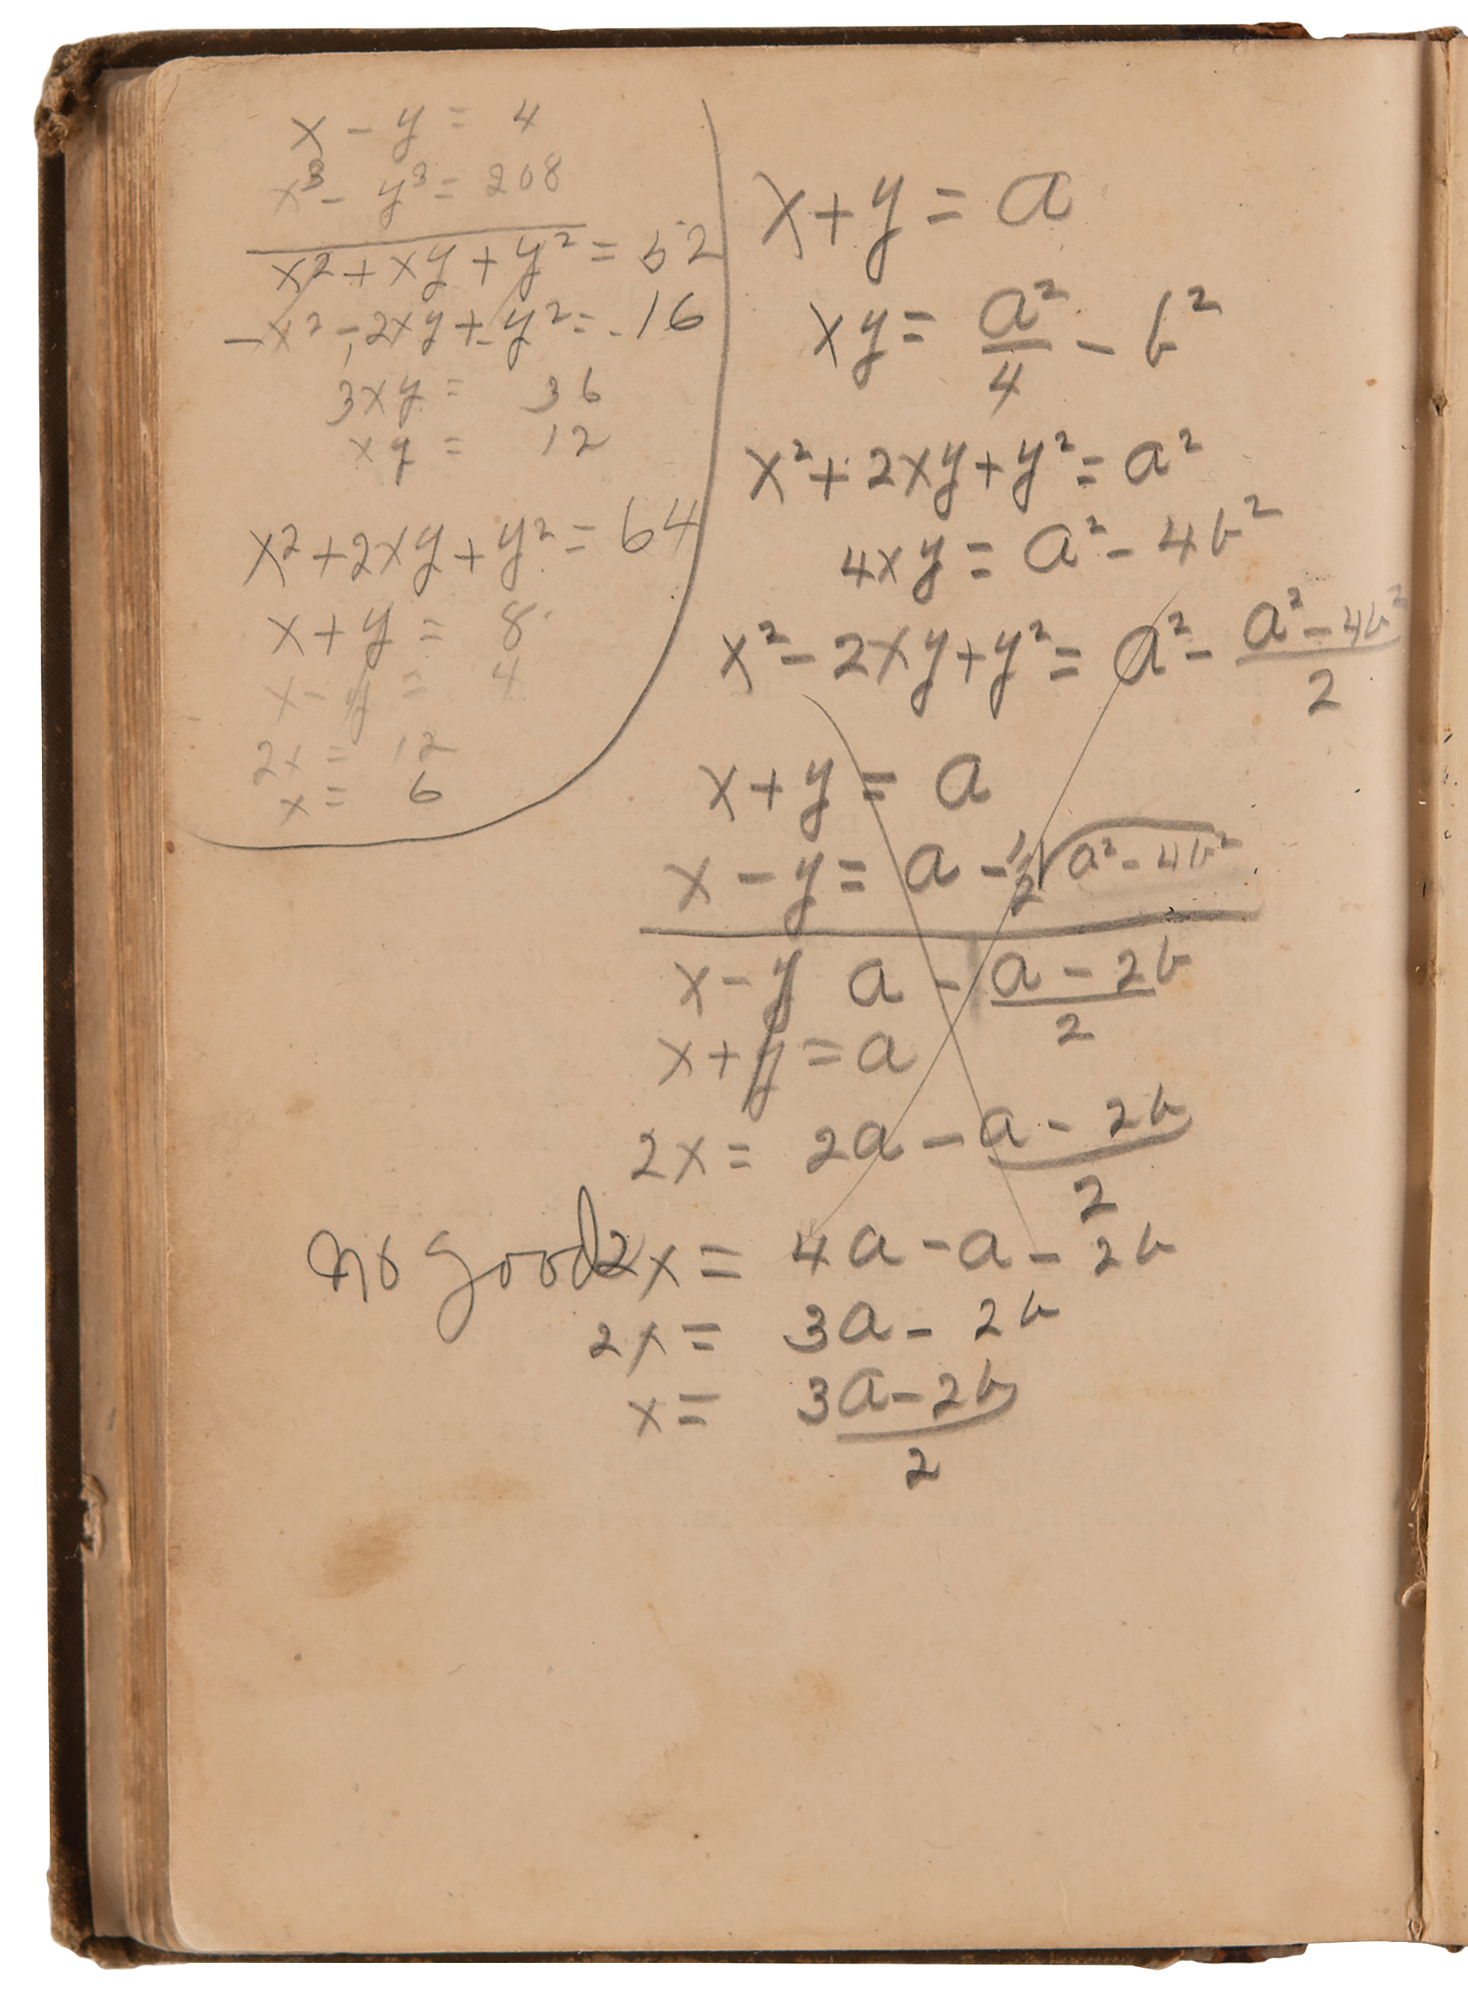 x - y = 4
x³ - y³ = 208
x² + xy + y² = 52
- x² - 2xy + y² = - 16
3xy = 36
xy = 12
x² + 2xy + y² = 64
x + y = 8
x - y = 4
2x = 12
x = 6
x + y = a
xy = a²/4 - b²
x² + 2xy + y² = a²
4xy = a² - 4b²
x² - 2xy + y² = a² - (a² - 4b²)/2
x + y = a
x - y = a - 1/2 √(a² - 4b²)
x - y a - (a - 2b)/2
x + y = a
2x = 2a - (a - 2b)/2
no good 2x = 4a - a - 2b
2x = 3a - 2b
x = (3a - 2b)/2